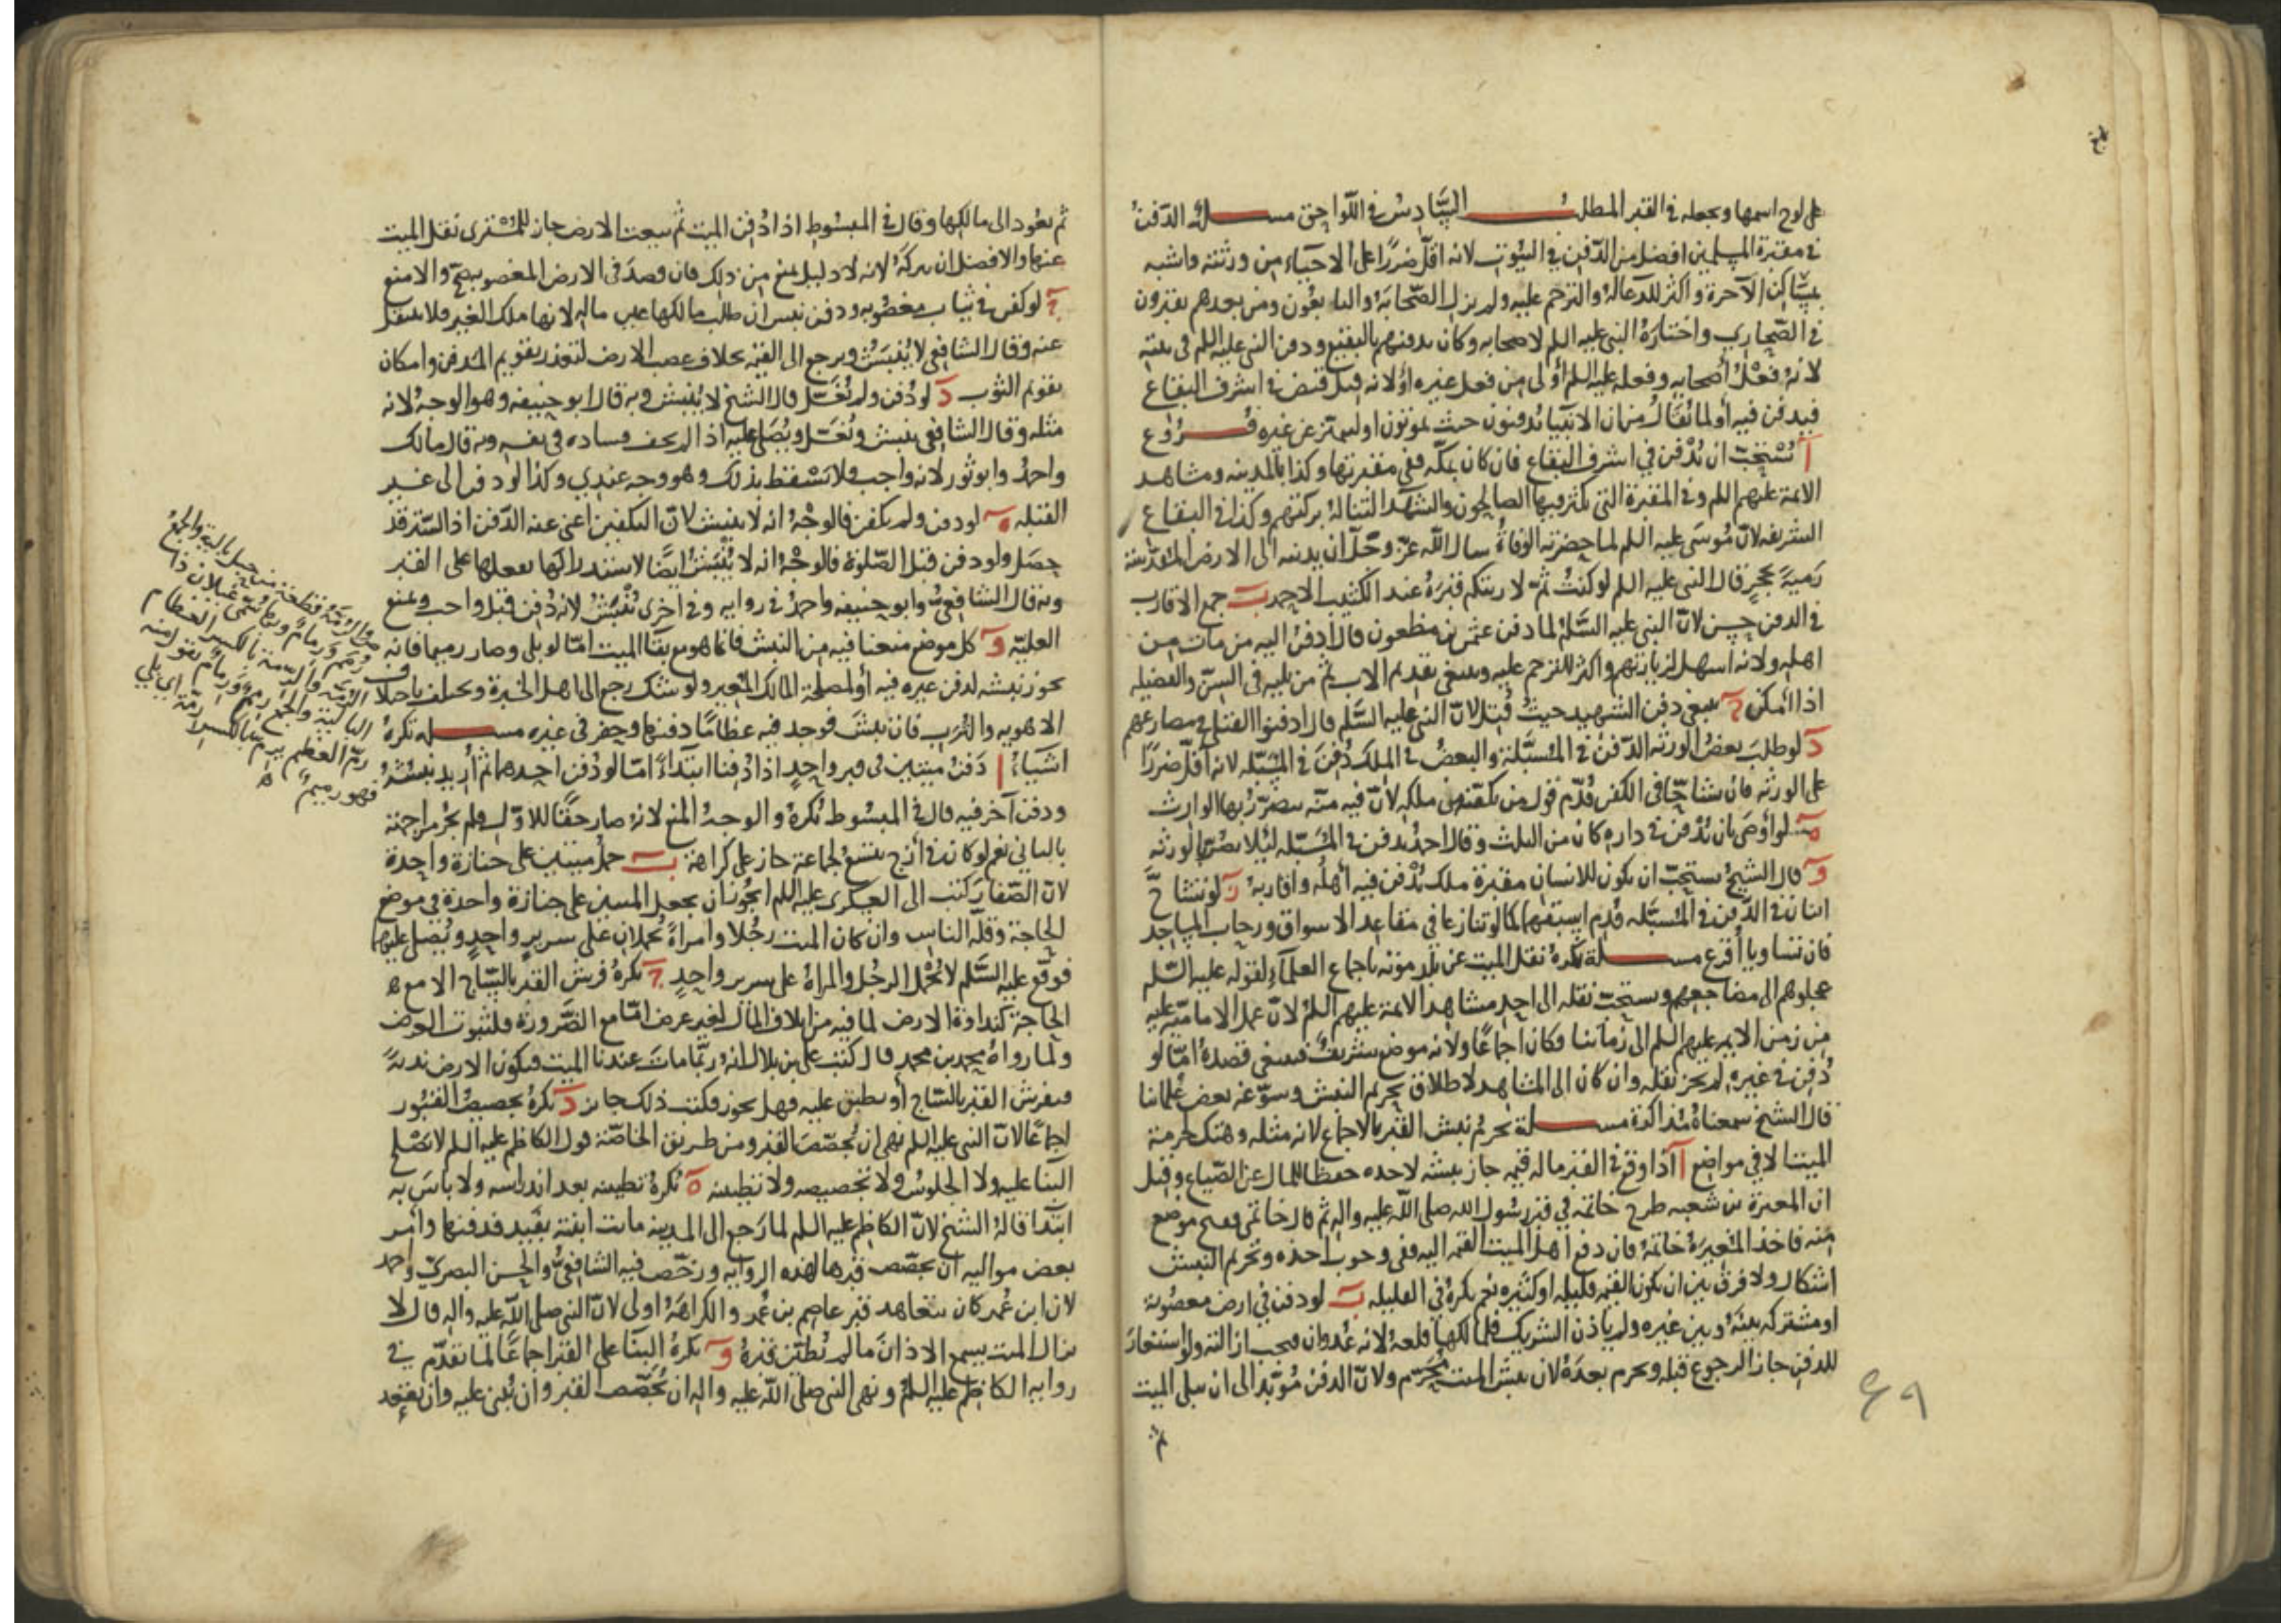 على لوح اسمها ويجعله في القبر المطلب السادس في اللواحق مسلة الدفن
في مقبرة المسلمين افضل من الدفن في البيوت لانه اقل ضررا على الاحياء من ورثته واشبه
بمساكن الآخرة واكثر للدعاله والترحم عليه ولم يزل الصحابة والتابعون ومن بعدهم يقبرون
في الصحاري واختاره النبي عليه السلم لاصحابه وكان يدفنهم بالبقيع ودفن النبي عليه السلم في بيته
لانه فعل أصحابه وفعله عليه السلم أولى من فعل غيره أو لانه قبل قبض في اشرف البقاع
فيدفن فيه أو لما يقال من ان الانبيا يدفنون حيث يموتون او ليميز عن غيره فروع
آ يستحب ان يدفن في اشرف البقاع فان كان بمكه ففي مقبرتها وكذا بالمدينه ومشاهد
الايمة عليهم السلم وفي المقبرة التي يكثر فيها الصالحون والشهدا لتناله بركتهم وكذا في البقاع
الشريفه لان موسى عليه السلم لما حضرته الوفاة سال الله عز وجل أن يدنيه الى الارض المقدسة
رمية بحجر قال النبي عليه السلم لو كنت ثم لاريتكم قبره عند الكثيب الاحمر ب جمع الاقارب
في الدفن حسن لان النبي عليه السلم لما دفن عثمن بن مظعون قال أدفن اليه من مات من
اهله ولانه اسهل لزيارتهم واكثر للترحم عليه وينبغي تقديم الاب ثم من يليه في السن والفضيله
اذا أمكن ج ينبغي دفن الشهيد حيث قتل لان النبي عليه السلم قال ادفنوا القتلى في مصارعهم
د لو طلب بعض الورثه الدفن في المسبلة والبعض في الملك دفن في المسبله لانه أقل ضررا
على الورثه فان تشاحا في الكفن قدم قول من يكفنه من ملكه لان فيه منه يتضرر بها الوارث
ه لو أوصى بان يدفن في داره كان من الثلث وقال احمد يدفن في المسبله ليلا يضر بالورثه
و قال الشيخ يستحب ان يكون للانسان مقبرة ملك يدفن فيه أهله واقاربه ز لو تشاح
اثنان في الدفن في المسبله قدم اسبقهما كما لو تنازعا في مقاعد الاسواق ورحاب المساجد
فان تساويا أقرع مسلة يكره نقل الميت عن بلد موته باجماع العلماء لقوله عليه السلم
عجلوهم الى مضاجعهم ويستحب نقله الى احد مشاهد الايمة عليهم السلم لان عمل الامامية عليه
من زمن الايمه عليهم السلم الى زماننا وكان اجماعا ولانه موضع شريف فينبغي قصده أما لو
دفن في غيره لم يجز نقله وان كان الى المشاهد لاطلاق تحريم النبش وسوغه بعض علمائنا
قال الشيخ سمعناه مذاكرة مسلة يحرم نبش القبر بالاجماع لانه مثله وهتك لحرمة
الميت الا في مواضع آ اذا وقع في القبر ماله قيمه جاز نبشه لاخذه حفظا للمال عن الضياع وقيل
ان المغيرة بن شعبه طرح خاتمه في قبر رسول الله صلى الله عليه واله ثم قال خاتمي ففتح موضع
منه فاخذ المغيرة خاتمه فان دفع أهل الميت القيمه اليه ففي وجوب أخذه وتحريم النبش
اشكال ولا فرق بين ان يكون القيمه قليله او كثيره نعم يكره في القليله ب لو دفن في ارض مغصوبة
او مشتركه بينه وبين غيره ولم ياذن الشريك فلمالكها قلعه لانه عدوان فيجب ازالته ولو استعار
للدفن جاز الرجوع قبله ويحرم بعده لان نبش الميت محرم ولان الدفن مؤبد الى ان يبلى الميت
ثم
ثم يعود الى مالكها وقال في المبسوط اذا دفن الميت ثم بيعت الارض جاز للمشتري نقل الميت
عنها والافضل ان يتركه لانه لا دليل يمنع من ذلك فان قصد في الارض المغصوبه صح والا منع
ج لو كفن في ثياب مغصوبه ودفن نبش ان طلب مالكها عين ماله لانها ملك الغير فلا ينتقل
عنه وقال الشافعي لا ينبش ويرجع الى القيمه بخلاف غصب الارض لتعذر تقويم المدفن وامكان
تقويم الثوب د لو دفن ولم يغسل قال الشيخ لا ينبش وبه قال ابو حنيفه وهو الوجه لانه
مثله وقال الشافعي ينبش ويغسل ويصلى عليه اذا لم يخف فساده في نفسه وبه قال مالك
واحمد وابو ثور لانه واجب فلا يسقط بذلك وهو وجه عندي وكذا لو دفن الى غير
القبله ه لو دفن ولم يكفن فالوجه انه لا ينبش لان التكفين اغنى عنه الدفن اذ الستر قد
حصل ولو دفن قبل الصلوة فالوجه انه لا ينبش ايضا لاستدراكها بفعلها على القبر
وبه قال الشافعي وابو حنيفه واحمد في روايه وفي اخرى ينبش لانه دفن قبل واجب ويمنع
العلية و كل موضع منعنا فيه من النبش فانما هو مع بقا الميت أما لو بلى وصار رميما فانه
يجوز نبشه لدفن غيره فيه أو لمصلحة المالك المعير ولو شك رجع الى اهل الخبرة ويختلف باختلاف
الاهويه والترب فان نبش فوجد فيه عظاما دفنها وحفر في غيره مسلة تكره
اشياء ا دفن ميتين في قبر واحد اذا دفنا ابتداء امّا لو دفن احدهما ثم أريد نبشه
ودفن آخر فيه قال في المبسوط يكره والوجه المنع لانه صار حقا للاول فلم يجز مزاحمته
بالثاني نعم لو كان في أزج يتسع لجماعة جاز على كراهة ب حمل ميتين على جنازة واحدة
لان الصفار كتب الى العسكري عليه السلم ايجوز ان يجعل الميتين على جنازة واحدة في موضع
الحاجة وقله الناس وان كان الميت رجلا وامراة يحملان على سرير واحد ويصلى عليهما
فوقع عليه السلم لا يحمل الرجل والمراة على سرير واحد ج يكره فرش القبر بالساج الا مع
الحاجة كنداوة الارض لما فيه من اتلاف المال لغير غرض امّا مع الضرورة فلثبوت الغرض
ولما رواه محمد بن محمد قال كتب علي بن بلال انه ربما مات عندنا الميت فيكون الارض ندية
فيفرش القبر بالساج أو يطبق عليه فهل يجوز فكتب ذلك جايز د يكره تجصيص القبور
إجماعا لان النبي عليه السلم نهى ان يجصص القبر ومن طريق الخاصة قول الكاظم عليه السلم لا يصلح
البنا عليه ولا الجلوس ولا تجصيصه ولا تطيينه ه يكره تطيينه بعد اندراسه ولا باس به
ابتدا قاله الشيخ لان الكاظم عليه السلم لما رجع الى المدينه ماتت ابنته بفيد فدفنها وأمر
بعض مواليه ان يجصص قبرها لهذه الروايه ورخص فيه الشافعي والحسن البصري وأحمد
لان ابن عمر كان يتعاهد قبر عاصم بن عمر والكراهة اولى لان النبي صلى الله عليه واله قال لا
يزال الميت يسمع الاذان ما لم يطين قبره و يكره البنا على القبر اجماعا لما تقدم في
رواية الكاظم عليه السلم ونهى النبي صلى الله عليه واله ان يجصص القبر وان يبنى عليه وان يقعد
البالية والجمع رمم ورمام تقول منه
رم العظم يرم بالكسر رمة اي بلي
فهو رميم